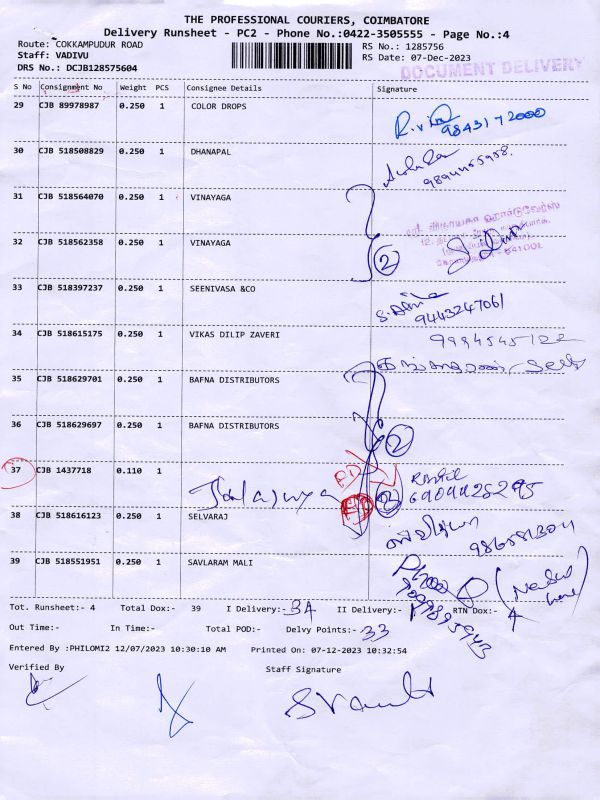 THE PROFESSIONAL COURIERS, COIMBATORE
Delivery Runsheet - PC2 - Phone No.:0422-3505555 - Page No.:4
Route: COKKAMPUDUR ROAD RS No.: 1285756
Staff: VADIVU RS Date: 07-Dec-2023
DRS No.: DCJB128575604
DOCUMENT DELIVERY
S No Consignment No Weight PCS Consignee Details Signature
29 CJB 89978987 0.250 1 COLOR DROPS
9843172000
30 CJB 518508829 0.250 1 DHANAPAL
31 CJB 518564070 0.250 1 VINAYAGA
32 CJB 518562358 0.250 1 VINAYAGA
2
33 CJB 518397237 0.250 1 SEENIVASA &CO
9443247061
34 CJB 518615175 0.250 1 VIKAS DILIP ZAVERI
9994545122
35 CJB 518629701 0.250 1 BAFNA DISTRIBUTORS
36 CJB 518629697 0.250 1 BAFNA DISTRIBUTORS
2
37 CJB 1437718 0.110 1
2
38 CJB 518616123 0.250 1 SELVARAJ
39 CJB 518551951 0.250 1 SAVLARAM MALI
Tot. Runsheet:- 4 Total Dox:- 39 I Delivery:- II Delivery:- RTN Dox:-
Out Time:- In Time:- Total POD:- Delvy Points:- 33
Entered By :PHILOMI2 12/07/2023 10:30:10 AM Printed On: 07-12-2023 10:32:54
Verified By Staff Signature